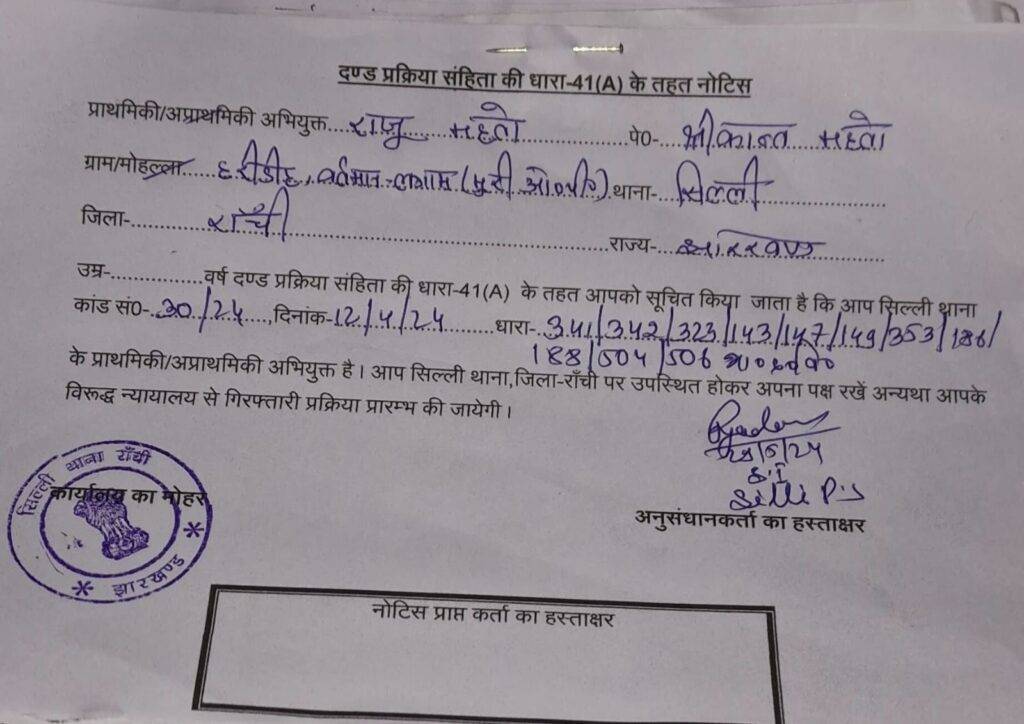 दण्ड प्रक्रिया संहिता की धारा-41(A) के तहत नोटिस
प्राथमिकी/अप्राथमिकी अभियुक्त....राजु महतो..................पे0- श्रीकान्त महतो
ग्राम/मोहल्ला......हरीडीह, वर्तमान लगाम (मुरी ओ०पी०) थाना-...सिल्ली..................
जिला-............राँची........................................राज्य-...झारखण्ड............
उम्र-...............वर्ष दण्ड प्रक्रिया संहिता की धारा-41(A) के तहत आपको सूचित किया जाता है कि आप सिल्ली थाना
कांड सं0-.30/24....,दिनांक-12/4/24.........धारा- 341/342/323/143/147/149/353/186/
188/504/506 भा०द०वि०
के प्राथमिकी/अप्राथमिकी अभियुक्त है। आप सिल्ली थाना,जिला-राँची पर उपस्थित होकर अपना पक्ष रखें अन्यथा आपके
विरूद्ध न्यायालय से गिरफ्तारी प्रक्रिया प्रारम्भ की जायेगी।
/5/24
S.I
Silli P.S
अनुसंधानकर्ता का हस्ताक्षर
सिल्ली थाना राँची
कार्यालय का मोहर
झारखण्ड
नोटिस प्राप्त कर्ता का हस्ताक्षर